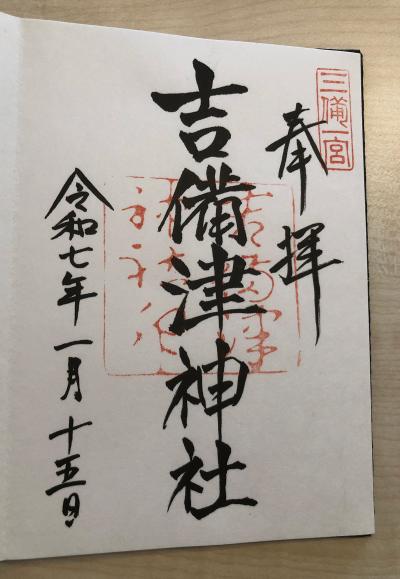 三備一宮
奉拝
吉備津神社
令和七年一月十五日